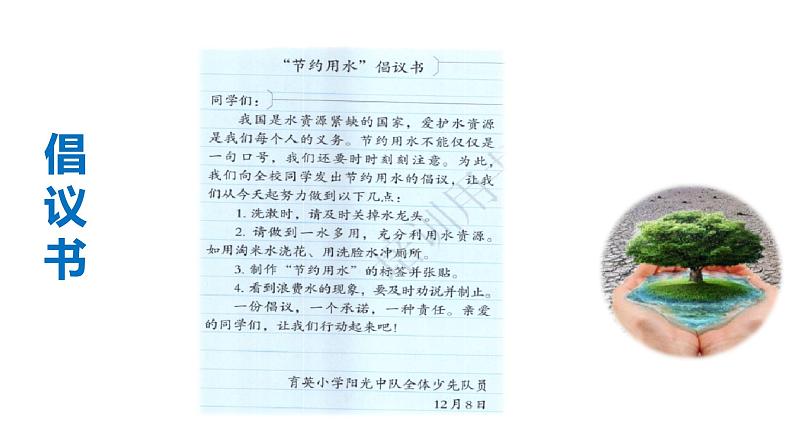 倡议书
“节约用水”倡议书
同学们：
我国是水资源紧缺的国家，爱护水资源
是我们每个人的义务。节约用水不能仅仅是
一句口号，我们还要时时刻刻注意。为此，
我们向全校同学发出节约用水的倡议，让我
们从今天起努力做到以下几点：
1. 洗漱时，请及时关掉水龙头。
2. 请做到一水多用，充分利用水资源。
如用淘米水浇花、用洗脸水冲厕所。
3. 制作“节约用水”的标签并张贴。
4. 看到浪费水的现象，要及时劝说并制止。
一份倡议，一个承诺，一种责任。亲爱
的同学们，让我们行动起来吧！
育英小学阳光中队全体少先队员
12月8日